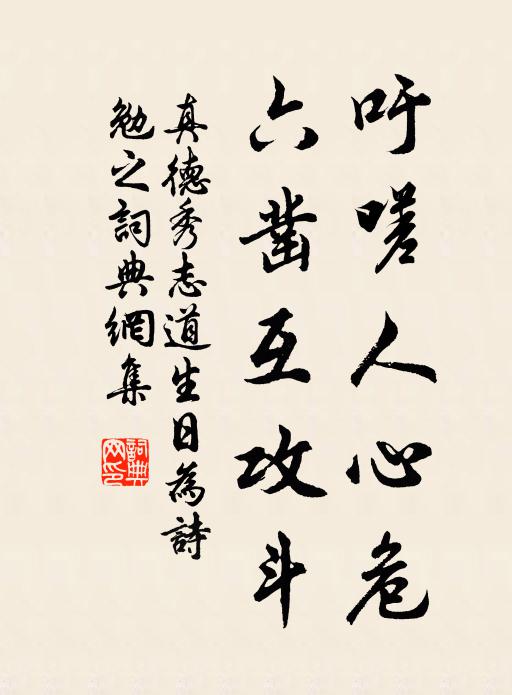 吁嗟人心危
六凿互攻斗
真德秀志道生日為詩
勉之詞典網集
詞典
网印